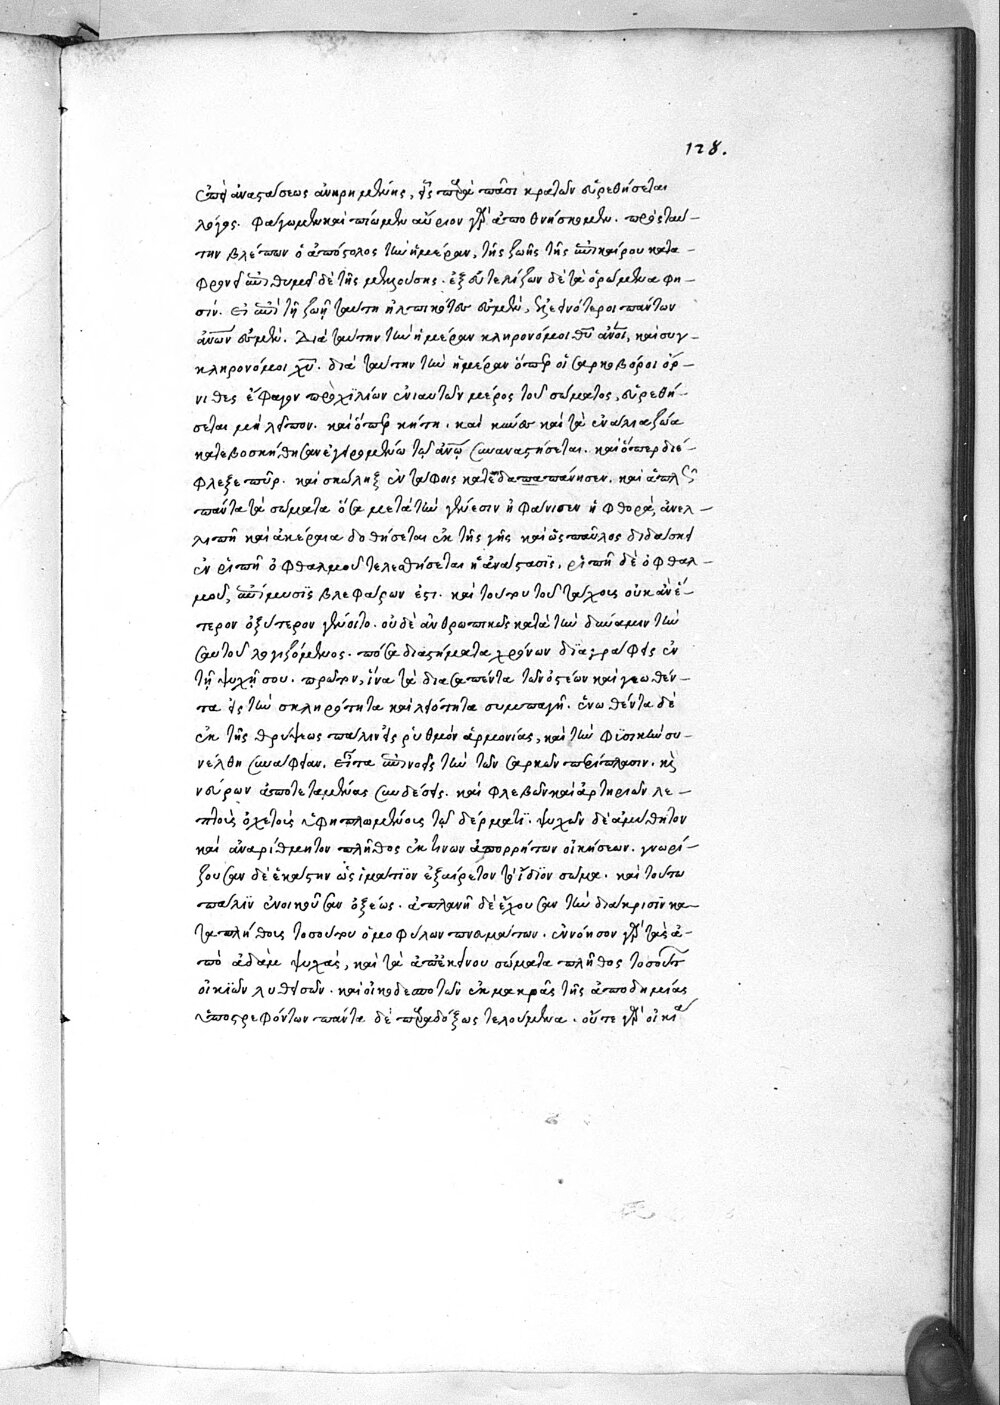 128.
ἐπὶ ἀναστάσεως ἀνῃρημένης, εἷς παρὰ πᾶσι κρατῶν εὑρεθήσεται
λόγος. Φάγωμεν καὶ πίωμεν αὔριον γὰρ ἀποθνήσκομεν. πρὸς ταύ-
την βλέπων ὁ ἀπόστολος τὴν ἡμέραν, τῆς ζωῆς τῆς ἐπικαίρου κατα-
φρονεῖ ἐπιθυμεῖ δὲ τῆς μελλούσης. ἐξευτελίζων δὲ τὰ ὁρώμενα φη-
σίν. Εἰ ἐπὶ τῇ ζωῇ ταύτῃ ἠλπικότες ἐσμέν, ἐλεεινότεροι πάντων
ἀνων ἐσμέν. Διὰ ταύτην τὴν ἡμέραν κληρονόμοι θυ ἄνοι, καὶ συγ-
κληρονόμοι χυ. διὰ ταύτην τὴν ἡμέραν ὅπερ οἱ σαρκοβόροι ὄρ-
νιθες ἔφαγον πρὸ χιλίων ἐνιαυτῶν μέρος τοῦ σώματος, εὑρεθή-
σεται μὴ λεῖπον. καὶ ὅπερ κήτη. καὶ κύνες καὶ τὰ ἐνάλια ζῶα
κατεβοσκήθησαν ἐγειρομένω τῷ ἀνω συναναστήσεται. καὶ ὅπερ διέ-
φλεξε πῦρ. καὶ σκώληξ ἐν τάφοις κατεδαπαπάνησεν. καὶ ἁπλῶς
πάντα τὰ σώματα ὅσα μετὰ τὴν γένεσιν ἠφάνισεν ἡ φθορὰ, ἀνελ-
λιπῆ καὶ ἀκέραια δοθήσεται ἐκ τῆς γῆς καὶ ὡς παῦλος διδάσκει
ἐν ῥιπῇ ὀφθαλμοῦ τελεσθήσεται ἡ ἀνάστασις, ῥιπὴ δὲ ὀφθαλ-
μοῦ, ἐπίμυσις βλεφάρων ἐστι. καὶ τούτου τοῦ τάχους οὐκ ἂν ἕ-
τερον ὀξύτερον γένοιτο. οὐδὲ ἀνθρωπίνως κατὰ τὴν δύναμιν τὴν
σαυτοῦ λογιζόμενος. πόσα διαστήματα χρόνων διαγράφεις ἐν
τῇ ψυχῇ σου. πρῶτον, ἵνα τὰ διασαπέντα τῶν ὀστέων καὶ γεωθέν-
τα εἰς τὴν σκληρότητα καὶ λειότητα συμπαγῇ. ἑνωθέντα δὲ
ἐκ τῆς θρύψεως πάλιν εἰς ῥυθμὸν ἁρμονίας, καὶ τὴν φυσικὴν συ-
νέλθῃ συνάφειαν. εἶτα ἐπινοεῖς τὴν τῶν σαρκῶν περίπλασιν. κὶ
νεύρων ἀποτεταμένας συνδέσεις. καὶ φλεβῶν καὶ ἀρτηριῶν λε-
πτοὺς ὀχετοὺς ὑφηπλωμένους τῷ δέρματι. ψυχῶν δὲ ἀμύθητον
καὶ ἀναρίθμητον πλῆθος ἐκ τινων ἀπορρήτων οἰκήσεων. γνωρί-
ζουσαν δὲ ἑκάστην ὡς ἱμάτιον ἐξαίρετον τὸ ἴδιον σῶμα. καὶ τοῦτο
πάλιν ἐνοικοῦσαν ὀξέως. ἀπλανῆ δὲ ἔχουσαν τὴν διάκρισιν κα-
τὰ πλήθους τοσούτου ὁμοφύλων πνευμάτων. ἐννόησον γὰρ τὰς ἀ-
πὸ ἀδὰμ ψυχάς, καὶ τὰ ἀπ' ἐκείνου σώματα πλῆθος τοσοῦτ
οἰκιῶν λυθεισῶν. καὶ οἰκοδεσποτῶν ἐκ μακρᾶς τῆς ἀποδημίας
ὑποστρεφόντων πάντα δὲ παραδόξως τελούμενα. οὔτε γὰρ οἰκία